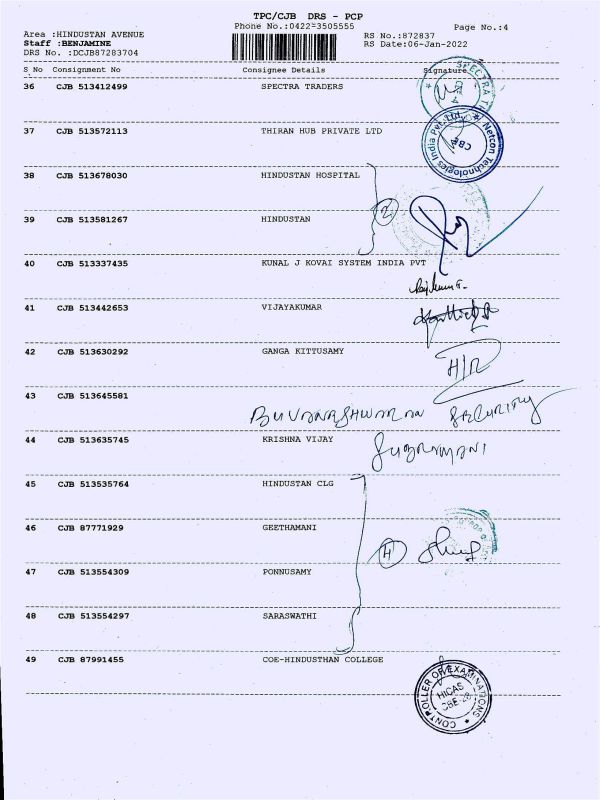 TPC/CJB DRS - PCP
Phone No.:0422-3505555
Page No.:4
Area :HINDUSTAN AVENUE
RS No.:872837
Staff :BENJAMINE
RS Date:06-Jan-2022
DRS No. :DCJB87283704
S No Consignment No Consignee Details Signature
36 CJB 513412499 SPECTRA TRADERS
SPECTRA
37 CJB 513572113 THIRAN HUB PRIVATE LTD
Netcon Technologies India Pvt. Ltd.
CBE
38 CJB 513678030 HINDUSTAN HOSPITAL
2
39 CJB 513581267 HINDUSTAN
40 CJB 513337435 KUNAL J KOVAI SYSTEM INDIA PVT
41 CJB 513442653 VIJAYAKUMAR
42 CJB 513630292 GANGA KITTUSAMY
H/R
43 CJB 513645581
BUVANASHWARAN SECURITY
44 CJB 513635745 KRISHNA VIJAY
SUBRAMANI
45 CJB 513535764 HINDUSTAN CLG
46 CJB 87771929 GEETHAMANI
4
47 CJB 513554309 PONNUSAMY
48 CJB 513554297 SARASWATHI
49 CJB 87991455 COE-HINDUSTHAN COLLEGE
CONTROLLER OF EXAMINATIONS
HICAS
CBE-28